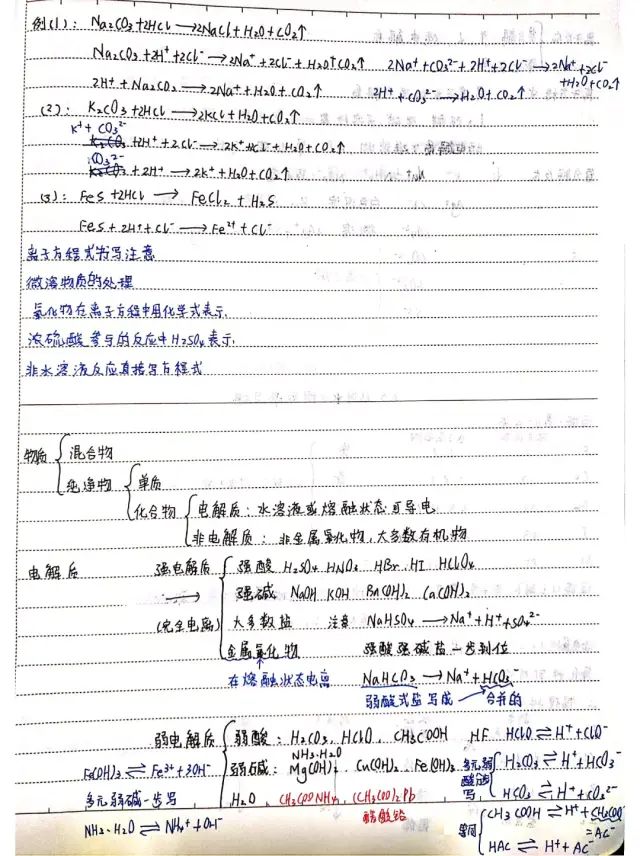 例(1): Na₂CO₃+2HCl→2NaCl+H₂O+CO₂↑
Na₂CO₃+2H⁺+2Cl⁻→2Na⁺+2Cl⁻+H₂O+CO₂↑ 2Na⁺+CO₃²⁻+2H⁺+2Cl⁻→2Na⁺+2Cl⁻+H₂O+CO₂↑
2H⁺+Na₂CO₃→2Na⁺+H₂O+CO₂↑ 2H⁺+CO₃²⁻→H₂O+CO₂↑
(2): K₂CO₃+2HCl→2KCl+H₂O+CO₂↑
K⁺+CO₃²⁻
K₂CO₃+2H⁺+2Cl⁻→2K⁺+Cl⁻+H₂O+CO₂↑
CO₃²⁻
K₂CO₃+2H⁺→2K⁺+H₂O+CO₂↑
(3): FeS+2HCl→FeCl₂+H₂S
FeS+2H⁺+Cl⁻→Fe²⁺+Cl⁻
离子方程式书写注意
微溶物质的处理
氧化物在离子方程中用化学式表示.
浓硫酸参与的反应中H₂SO₄表示.
非水溶液反应直接写方程式
物质{混合物
纯净物{单质
化合物{电解质: 水溶液或熔融状态可导电
非电解质: 非金属氧化物,大多数有机物
电解质 强电解质{强酸 H₂SO₄ HNO₃ HBr HI HClO₄
→ 强碱 NaOH KOH Ba(OH)₂ Ca(OH)₂
(完全电离) 大多数盐 注意 NaHSO₄→Na⁺+H⁺+SO₄²⁻
金属氧化物 强酸强碱盐一步到位
在熔融状态电离 NaHCO₃→Na⁺+HCO₃⁻
弱酸式盐写成 合并的
弱电解质{弱酸: H₂CO₃、HClO、CH₃COOH HF HClO⇌H⁺+ClO⁻
NH₃·H₂O
Fe(OH)₃⇌Fe³⁺+3OH⁻ 弱碱: Mg(OH)₂ Cu(OH)₂ Fe(OH)₃ 多元弱酸分步写{H₂CO₃⇌H⁺+HCO₃⁻
多元弱碱一步写 H₂O、CH₃COONH₄、(CH₃COO)₂Pb HCO₃⇌H⁺+CO₃²⁻
醋酸铅
NH₃·H₂O⇌NH₄⁺+OH⁻ 等同{CH₃COOH⇌H⁺+CH₃COO⁻
=Ac⁻
HAc⇌H⁺+Ac⁻